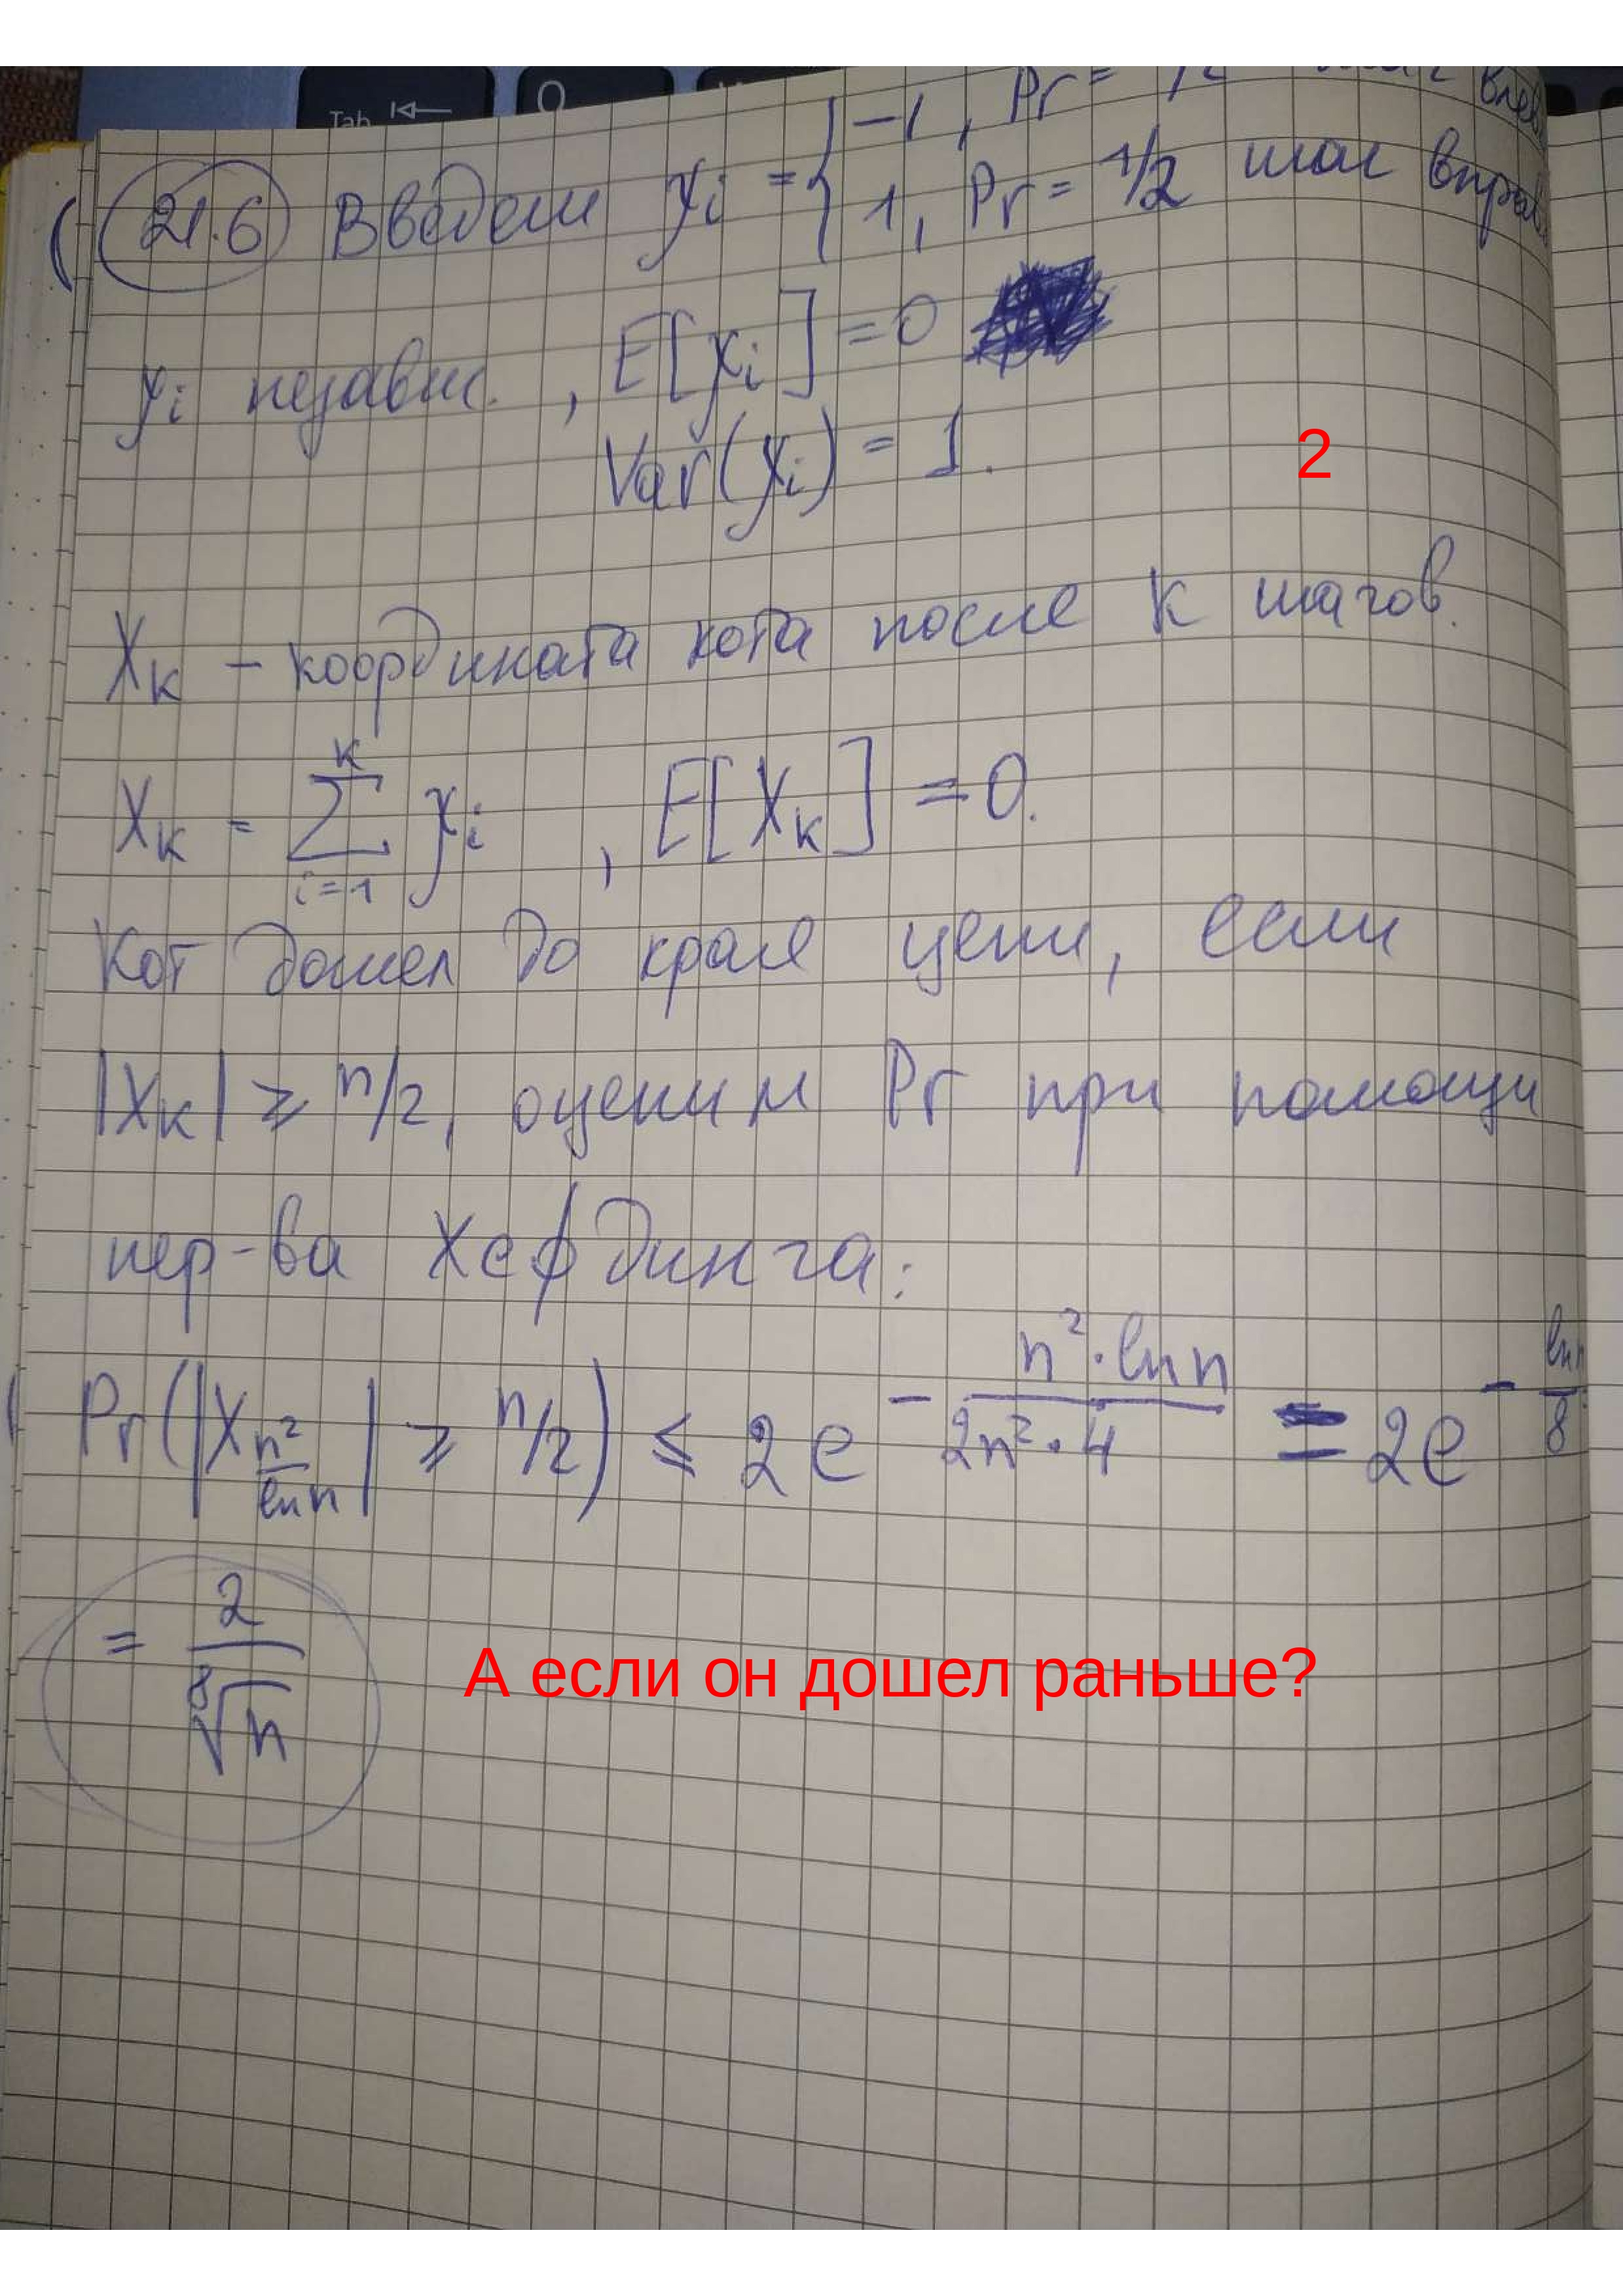 Tab
Q
-1, Pr =
21.6 Введем yi = { 1, Pr = 1/2 шаг вправо
yi независ., E[yi] = 0
Var(yi) = 1.
2
Xк – координата кота после к шагов.
Xк = ∑ yi, E[Xк] = 0.
к
i=1
Кот дошел до края цепи, если
|Xк| ≥ n/2, оценим Pr при помощи
нер-ва Хефдинга:
Pr(|X_{n²/ln n}| ≥ n/2) ≤ 2e^{-\frac{n²·ln n}{2n²·4}} = 2e^{-\frac{ln n}{8}}
= \frac{2}{\sqrt[8]{n}}
А если он дошел раньше?